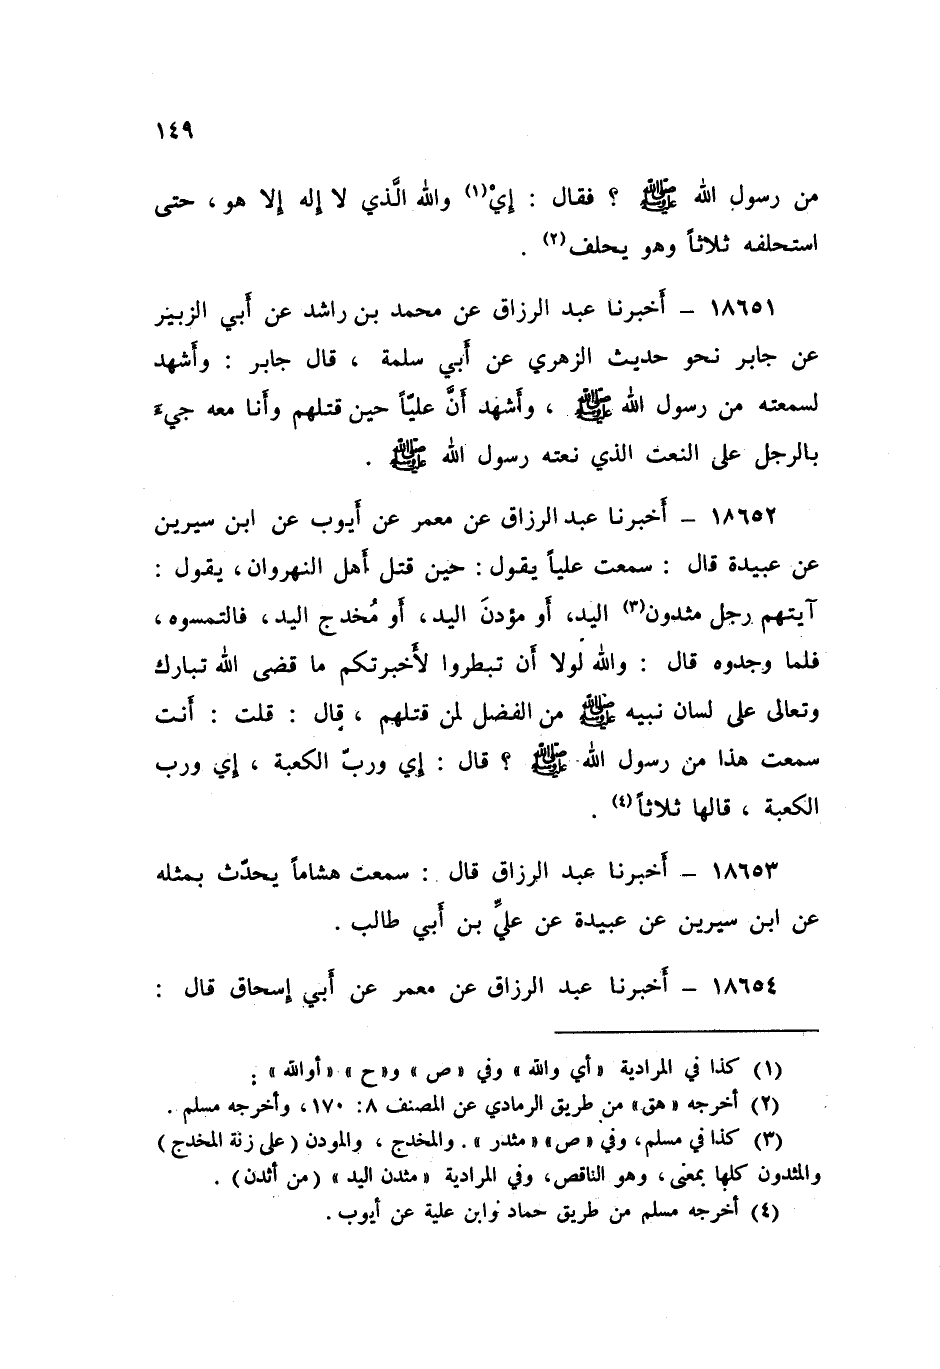 ١٤٩
من رسول الله ﷺ ؟ فقال : إيْ(١) والله الَّذي لا إله إلا هو ، حتى
استحلفه ثلاثاً وهو يحلف(٢) .
١٨٦٥١ – أخبرنا عبد الرزاق عن محمد بن راشد عن أبي الزبير
عن جابر نحو حديث الزهري عن أبي سلمة ، قال جابر : وأشهد
لسمعته من رسول الله ﷺ ، وأشهد أنَّ عليّاً حين قتلهم وأنا معه جيءَ
بالرجل على النعت الذي نعته رسول الله ﷺ .
١٨٦٥٢ – أخبرنا عبد الرزاق عن معمر عن أيوب عن ابن سيرين
عن عبيدة قال : سمعت علياً يقول : حين قتل أهل النهروان ، يقول :
آيتهم رجل مثدون(٣) اليد، أو مؤدنَ اليد، أو مُخدج اليد ، فالتمسوه ،
فلما وجدوه قال : والله لولا أن تبطروا لأخبرتكم ما قضى الله تبارك
وتعالى على لسان نبيه ﷺ من الفضل لمن قتلهم ، قال : قلت : أنت
سمعت هذا من رسول الله ﷺ ؟ قال : إي وربّ الكعبة ، إي ورب
الكعبة ، قالها ثلاثاً(٤) .
١٨٦٥٣ – أخبرنا عبد الرزاق قال : سمعت هشاماً يحدّث بمثله
عن ابن سيرين عن عبيدة عن عليٍّ بن أبي طالب .
١٨٦٥٤ – أخبرنا عبد الرزاق عن معمر عن أبي إسحاق قال :
(١) كذا في المرادية « أي والله » وفي « ص » و« ح » « أوالله » .
(٢) أخرجه « هق » من طريق الرمادي عن المصنف ٨: ١٧٠ ، وأخرجه مسلم .
(٣) كذا في مسلم، وفي « ص » « مثدر » . والمخدج ، والمودن ( على زنة المخدج )
والمثدون كلها بمعنى ، وهو الناقص، وفي المرادية « مثدن اليد » (من أثدن) .
(٤) أخرجه مسلم من طريق حماد وابن علية عن أيوب .